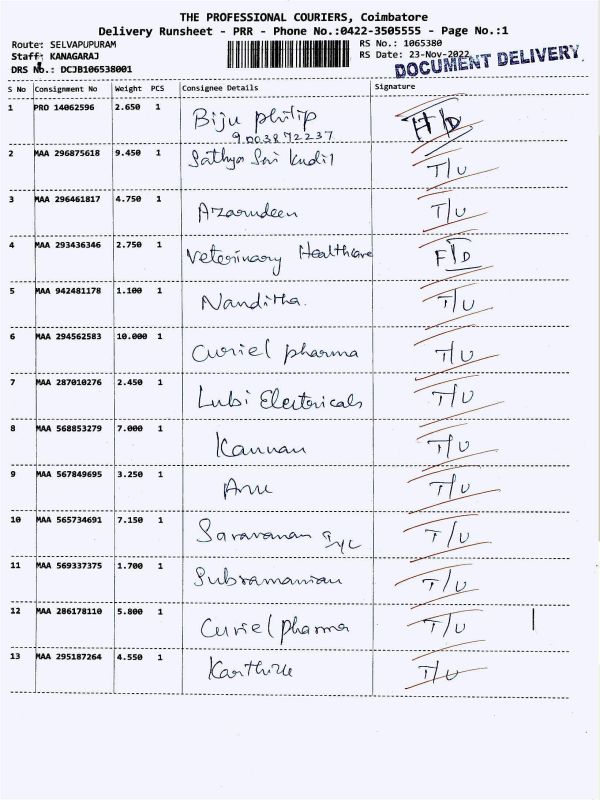 THE PROFESSIONAL COURIERS, Coimbatore
Delivery Runsheet - PRR - Phone No.:0422-3505555 - Page No.:1
Route: SELVAPUPURAM
RS No.: 1065380
Staff: KANAGARAJ
RS Date: 23-Nov-2022
DRS No.: DCJB106538001
DOCUMENT DELIVERY
S No Consignment No Weight PCS Consignee Details Signature
1 PRD 14062596 2.650 1 Biju philip H/D
9003872237
2 MAA 296875618 9.450 1 Sathya Sai kudil T/U
3 MAA 296461817 4.750 1 Azarudeen T/U
4 MAA 293436346 2.750 1 veterinary Healthcare F/D
5 MAA 942481178 1.100 1 Nanditha. T/U
6 MAA 294562583 10.000 1 curiel pharma T/U
7 MAA 287010276 2.450 1 Lubi Electricals T/U
8 MAA 568853279 7.000 1 Kannan T/U
9 MAA 567849695 3.250 1 T/U
10 MAA 565734691 7.150 1 Saravanan T/U
11 MAA 569337375 1.700 1 Subramanian T/U
12 MAA 286178110 5.800 1 Curiel pharma T/U
13 MAA 295187264 4.550 1 Karthik T/U